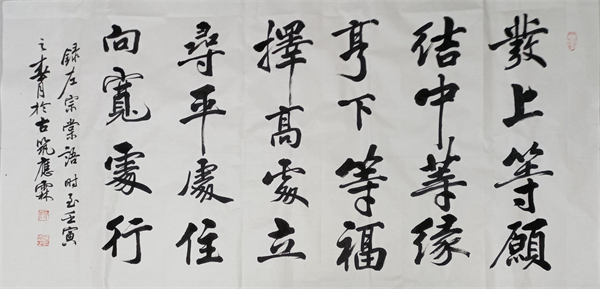 發上等願
結中等缘
享下等福
擇高處立
尋平處住
向寬處行
録左宗棠語 时至壬寅
之春月於古筑應霖